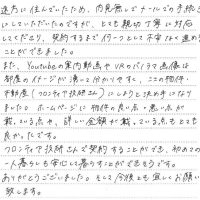 遠方に住んでいたため、内見無しでメールでの手続き
にしていただいたのですが、とても親切丁寧に対応
してくださり、契約するまでイターンとして不安なく進める
ことができました。
また、Youtubeの案内動画やVRのパノラマ画像は
部屋のイメージが湧きやすく分かりやすく、ここの物件・
不動産(フロンティア技研さん)にしようと決め手になり
ました。ホームページに物件の良い点・悪い点が
載っている点や、詳しい金額が載っている点もとても
良かったです。
フロンティア技研さんで契約することができ、初めての
一人暮らしも安心して暮らすことができそうです。
ありがとうございました。そして今後とも宜しくお願い
致します。